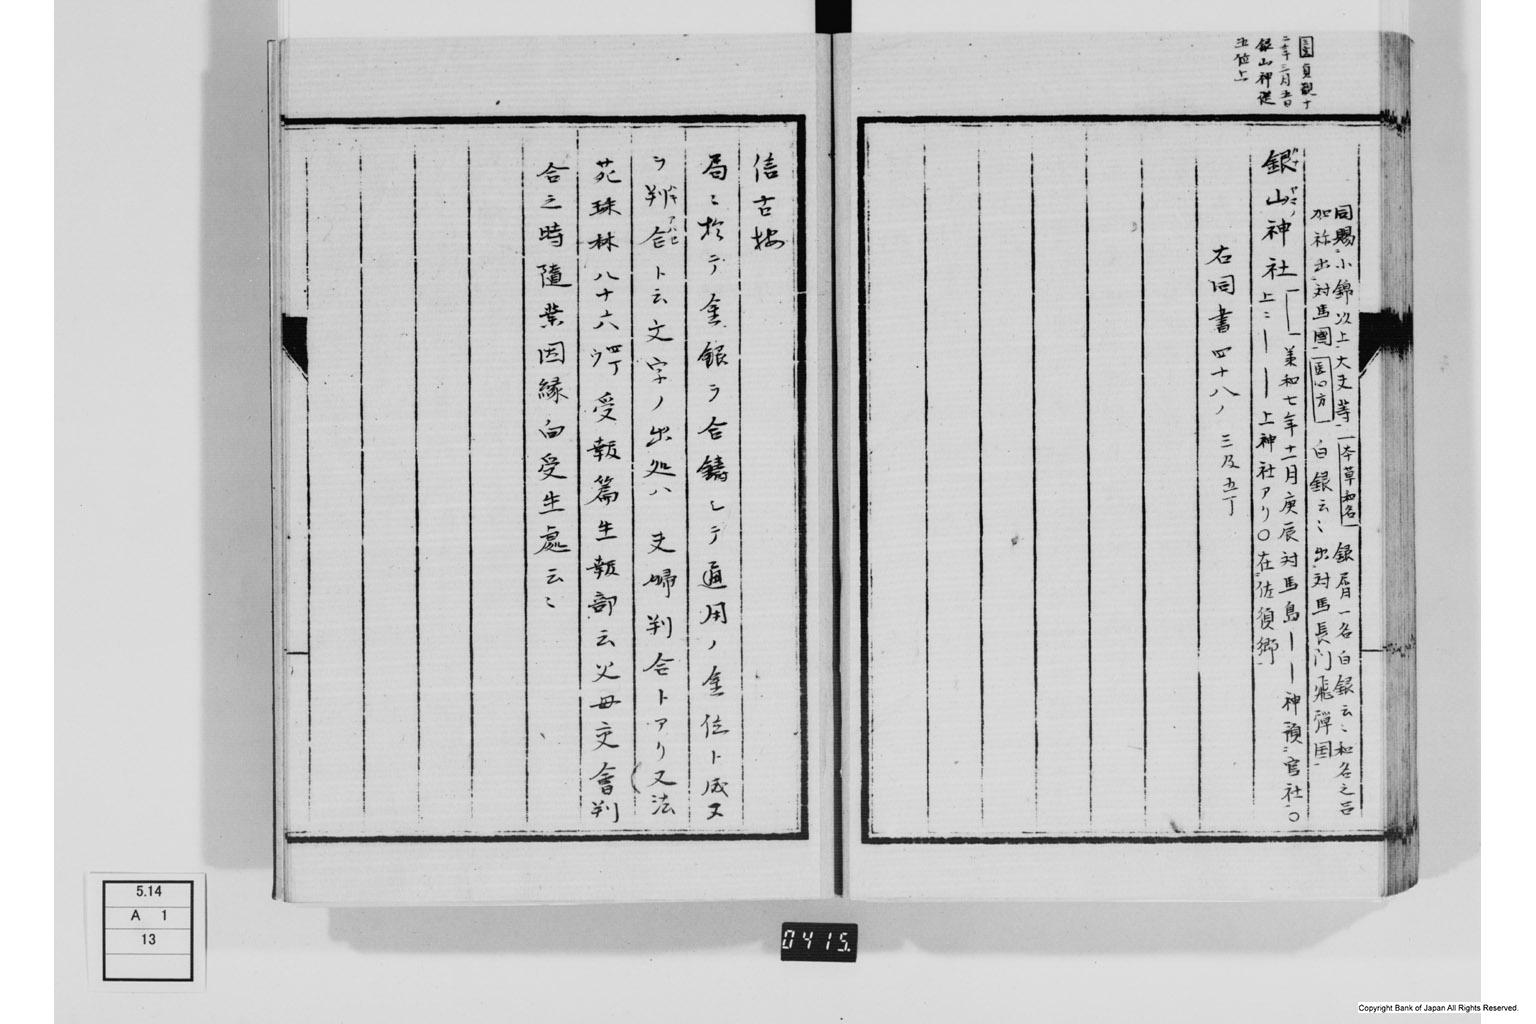 貞観十
二年三月五日
銀山神従
五位上
同賜小錦以上大夫等 本草和名 銀屑一名白銀云〻和名之呂
加祢出対馬國 医心方 白銀云〻出対馬長门飛弾国
銀山神社 承和七年十一月庚辰対馬島――神預官社〇
上〻――上神社アリ〇在佐須郷
右同書四十八ノ三及五丁
信古按
局〻於テ金銀ヲ合鋳シテ通用ノ金位ト成又
ヲ判合ト云文字ノ出処ハ 夫婦判合トアリ又法
苑珠林八十六四丁ウ受報篇生報部云父母交會判
合之時隨業因縁向受生處云〻
5.14
A 1
13
0415
Copyright Bank of Japan All Rights Reserved.